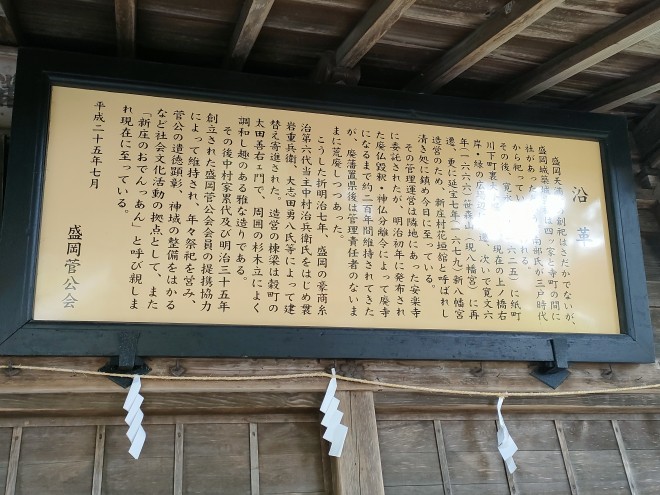 沿革
盛岡天　　　創祀はさだかでないが、
盛岡城築城　　は四ッ家と寺町の間に
社があっ　　　南部氏が三戸時代
から祀ってい　　　れる。
その後、寛永　　　六二五）に紙町
川下町裏　　　現在の上ノ橋右
岸）縁の広　辺　遷、次いで寛文六
年（一六六六）笹森山（現八幡宮）に再
遷、更に延宝七年（一六七九）新八幡宮
造営のため、新庄村花垣館と呼ばれし
清き処に鎮め今日に至っている。
その管理運営は隣地にあった安楽寺
に委託されたが、明治初年に発布され
た廃仏毀釈、神仏分離令によって廃寺
になるまで約二百年間維持されてきた
が、廃藩置県後は管理責任者のないま
まに荒廃しつつあった。
こうした折明治七年、盛岡の豪商糸
治第六代当主中村治兵衛氏をはじめ異
岩重兵衛、大志田勇八氏等によって建
替え寄進された。造営の棟梁は穀町の
太田善右ェ門で、周囲の杉木立によく
調和し趣のある雅な造りである。
その後中村家累代及び明治三十五年
創立された盛岡菅公会会員の提携協力
によって維持され、年々祭祀を営み、
菅公の遺徳顕彰、神域の整備をはかる
など社会文化活動の拠点として、また
「新庄のおでんっあん」と呼び親しま
れ現在に至っている。
平成二十五年七月
盛岡菅公会